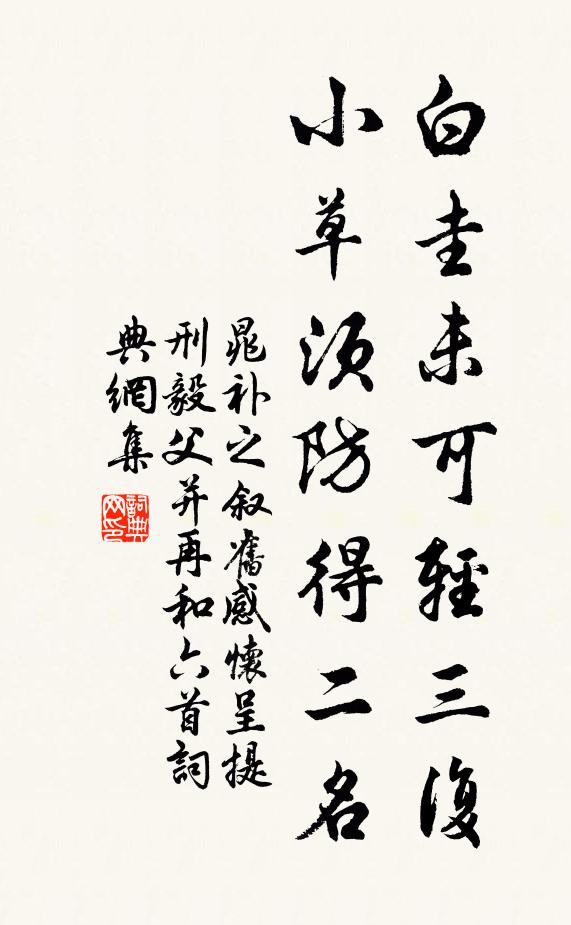 白圭未可輕三復
小草須防得二名
晁补之叙舊感懷呈提
刑毅父并再和六首詞
典網集
詞典網印